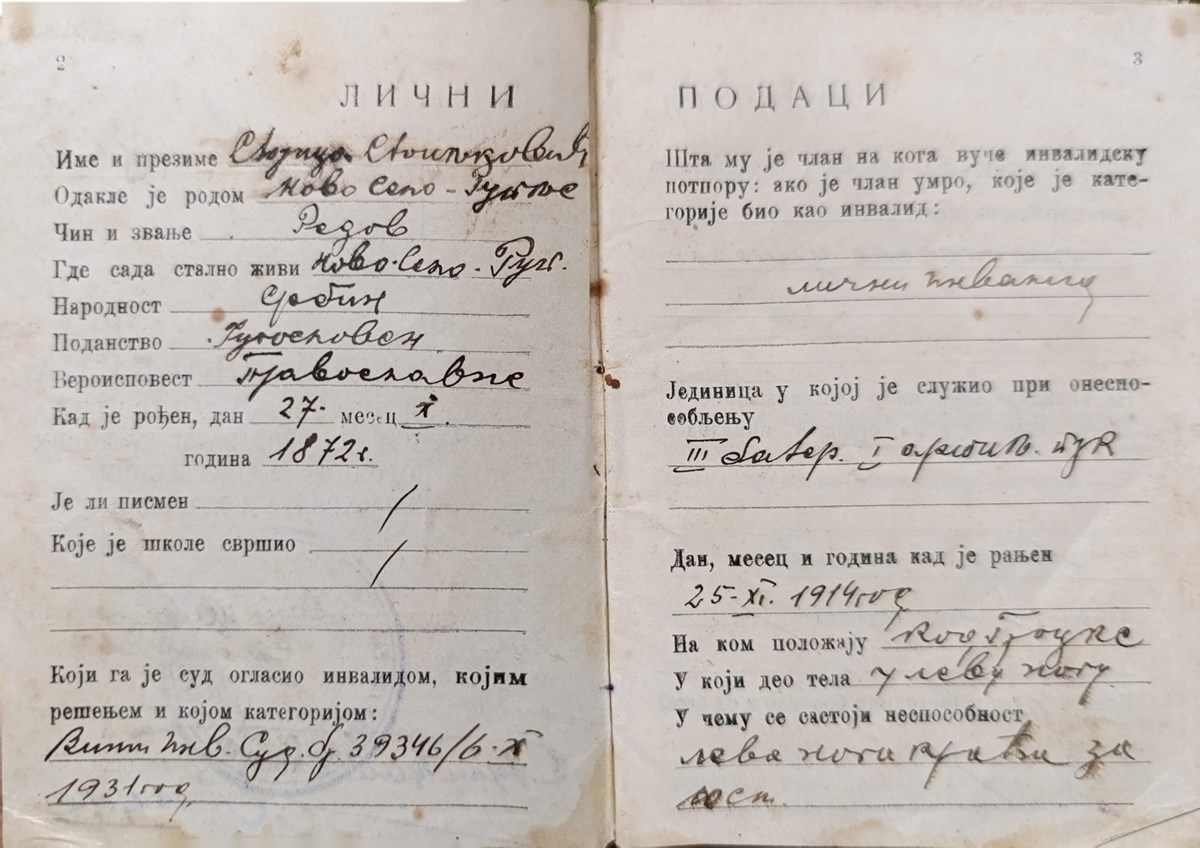 2
ЛИЧНИ
Име и презиме Стојица Стоиљковић
Одакле је родом Ново Село -
Чин и звање Редов
Где сада стално живи Ново Село -
Народност Србин
Поданство Југословен
Вероисповест Православне
Кад је рођен, дан 27. месец X.
година 1872 г.
Је ли писмен /
Које је школе свршио /
Који га је суд огласио инвалидом, којим
решењем и којом категоријом:
Виши Инв. Суд. бр. 39346/6-X
1931 год
3
ПОДАЦИ
Шта му је члан на кога вуче инвалидску
потпору: ако је члан умро, које је кате-
горије био као инвалид:
лични инвалид
Јединица у којој је служио при онеспо-
собљењу
III батер. I артиљ. пук
Дан, месец и година кад је рањен
25-XI. 1914 год
На ком положају код
У који део тела у леву ногу
У чему се састоји неспособност
лева нога краћа за
10 cm.